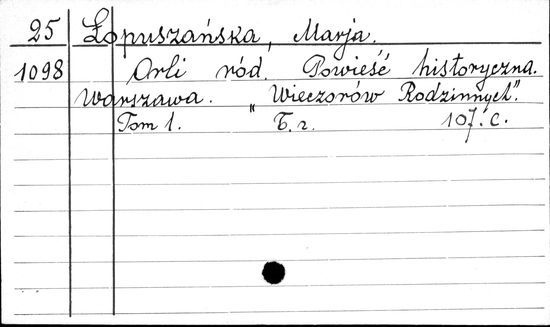 25 Łopuszańska, Marja.
1098 Orli ród. Powieść historyczna.
Warszawa. „Wieczorów Rodzinnych".
Tom 1. Б.г. 107.с.